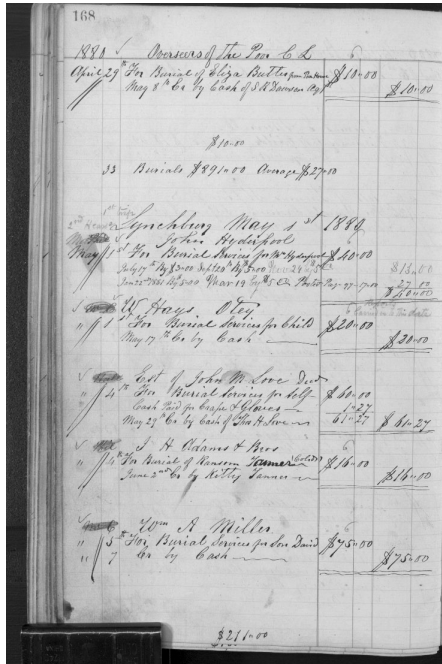 168
1880 Overseers of the Poor C L
April 29th For Burial of Eliza Butler from Poor House $10.00
May 8th Cr by Cash of S R Dawson Agt $10.00
$10.00
33 Burials $891.00 Average $27.00
Lynchburg May 1st 1880
John Hyderpool
May 1st For Burial Services for Wm Hyderpool $40.00
July 17th By $3.00 Sept 20th By 5.00 Nov 24 By 5 $13.00
Jan 22nd 1881 By 5.00 Mar 19 By $5 27.00
$40.00
W Hays Otey
1st For Burial Services for Child $20.00
May 17th Cr by Cash $20.00
Est of John M Love Decd
" 4th For Burial Services for Self $60.00
Cash Paid for Crape & Gloves 1.27
May 29th Cr by Cash of Thos H Love 61.27 $61.27
J H Adams & Bros
" 4th For Burial of Ransom Tanner Cold $16.00
June 2nd Cr by Kitty Tanner $16.00
6 Wm A Miller
" 5th For Burial Services for Son David $75.00
" 7 Cr by Cash $75.00
$211.00